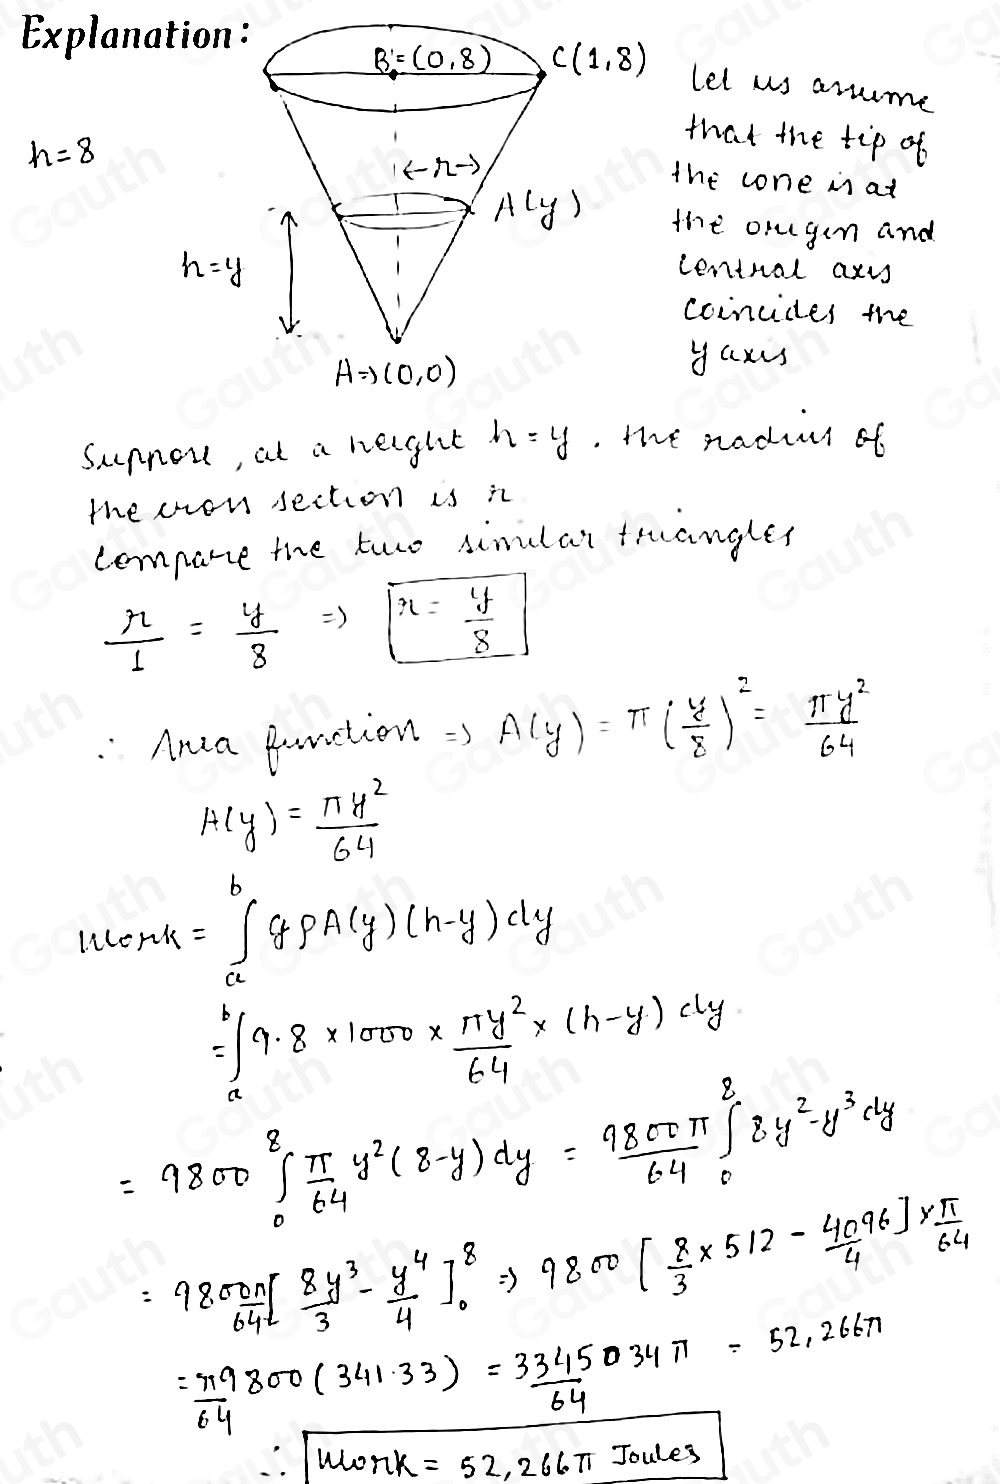 Explanation:
B=(0,8) C(1,8)
h=8
←r→
A(y)
h=y
A⇒(0,0)
Let us assume
that the tip of
the cone is at
the origin and
central axis
coincides the
y axis
Suppose, at a height h=y. the radius of
the cross section is r
compare the two similar triangles
r/1 = y/8 ⇒ r = y/8
∴ Area function ⇒ A(y) = π(y/8)² = πy²/64
A(y) = πy²/64
Work = ∫_a^b gρA(y)(h-y)dy
= ∫_a^b 9.8 × 1000 × πy²/64 × (h-y) dy
= 9800 ∫_0^8 π/64 y²(8-y)dy = 9800π/64 ∫_0^8 8y²-y³dy
= 9800π/64 [8y³/3 - y⁴/4]_0^8 ⇒ 9800 [8/3 × 512 - 4096/4] × π/64
= π/64 9800(341.33) = 3345034π/64 = 52,266π
∴ Work = 52,266π Joules
Gauth